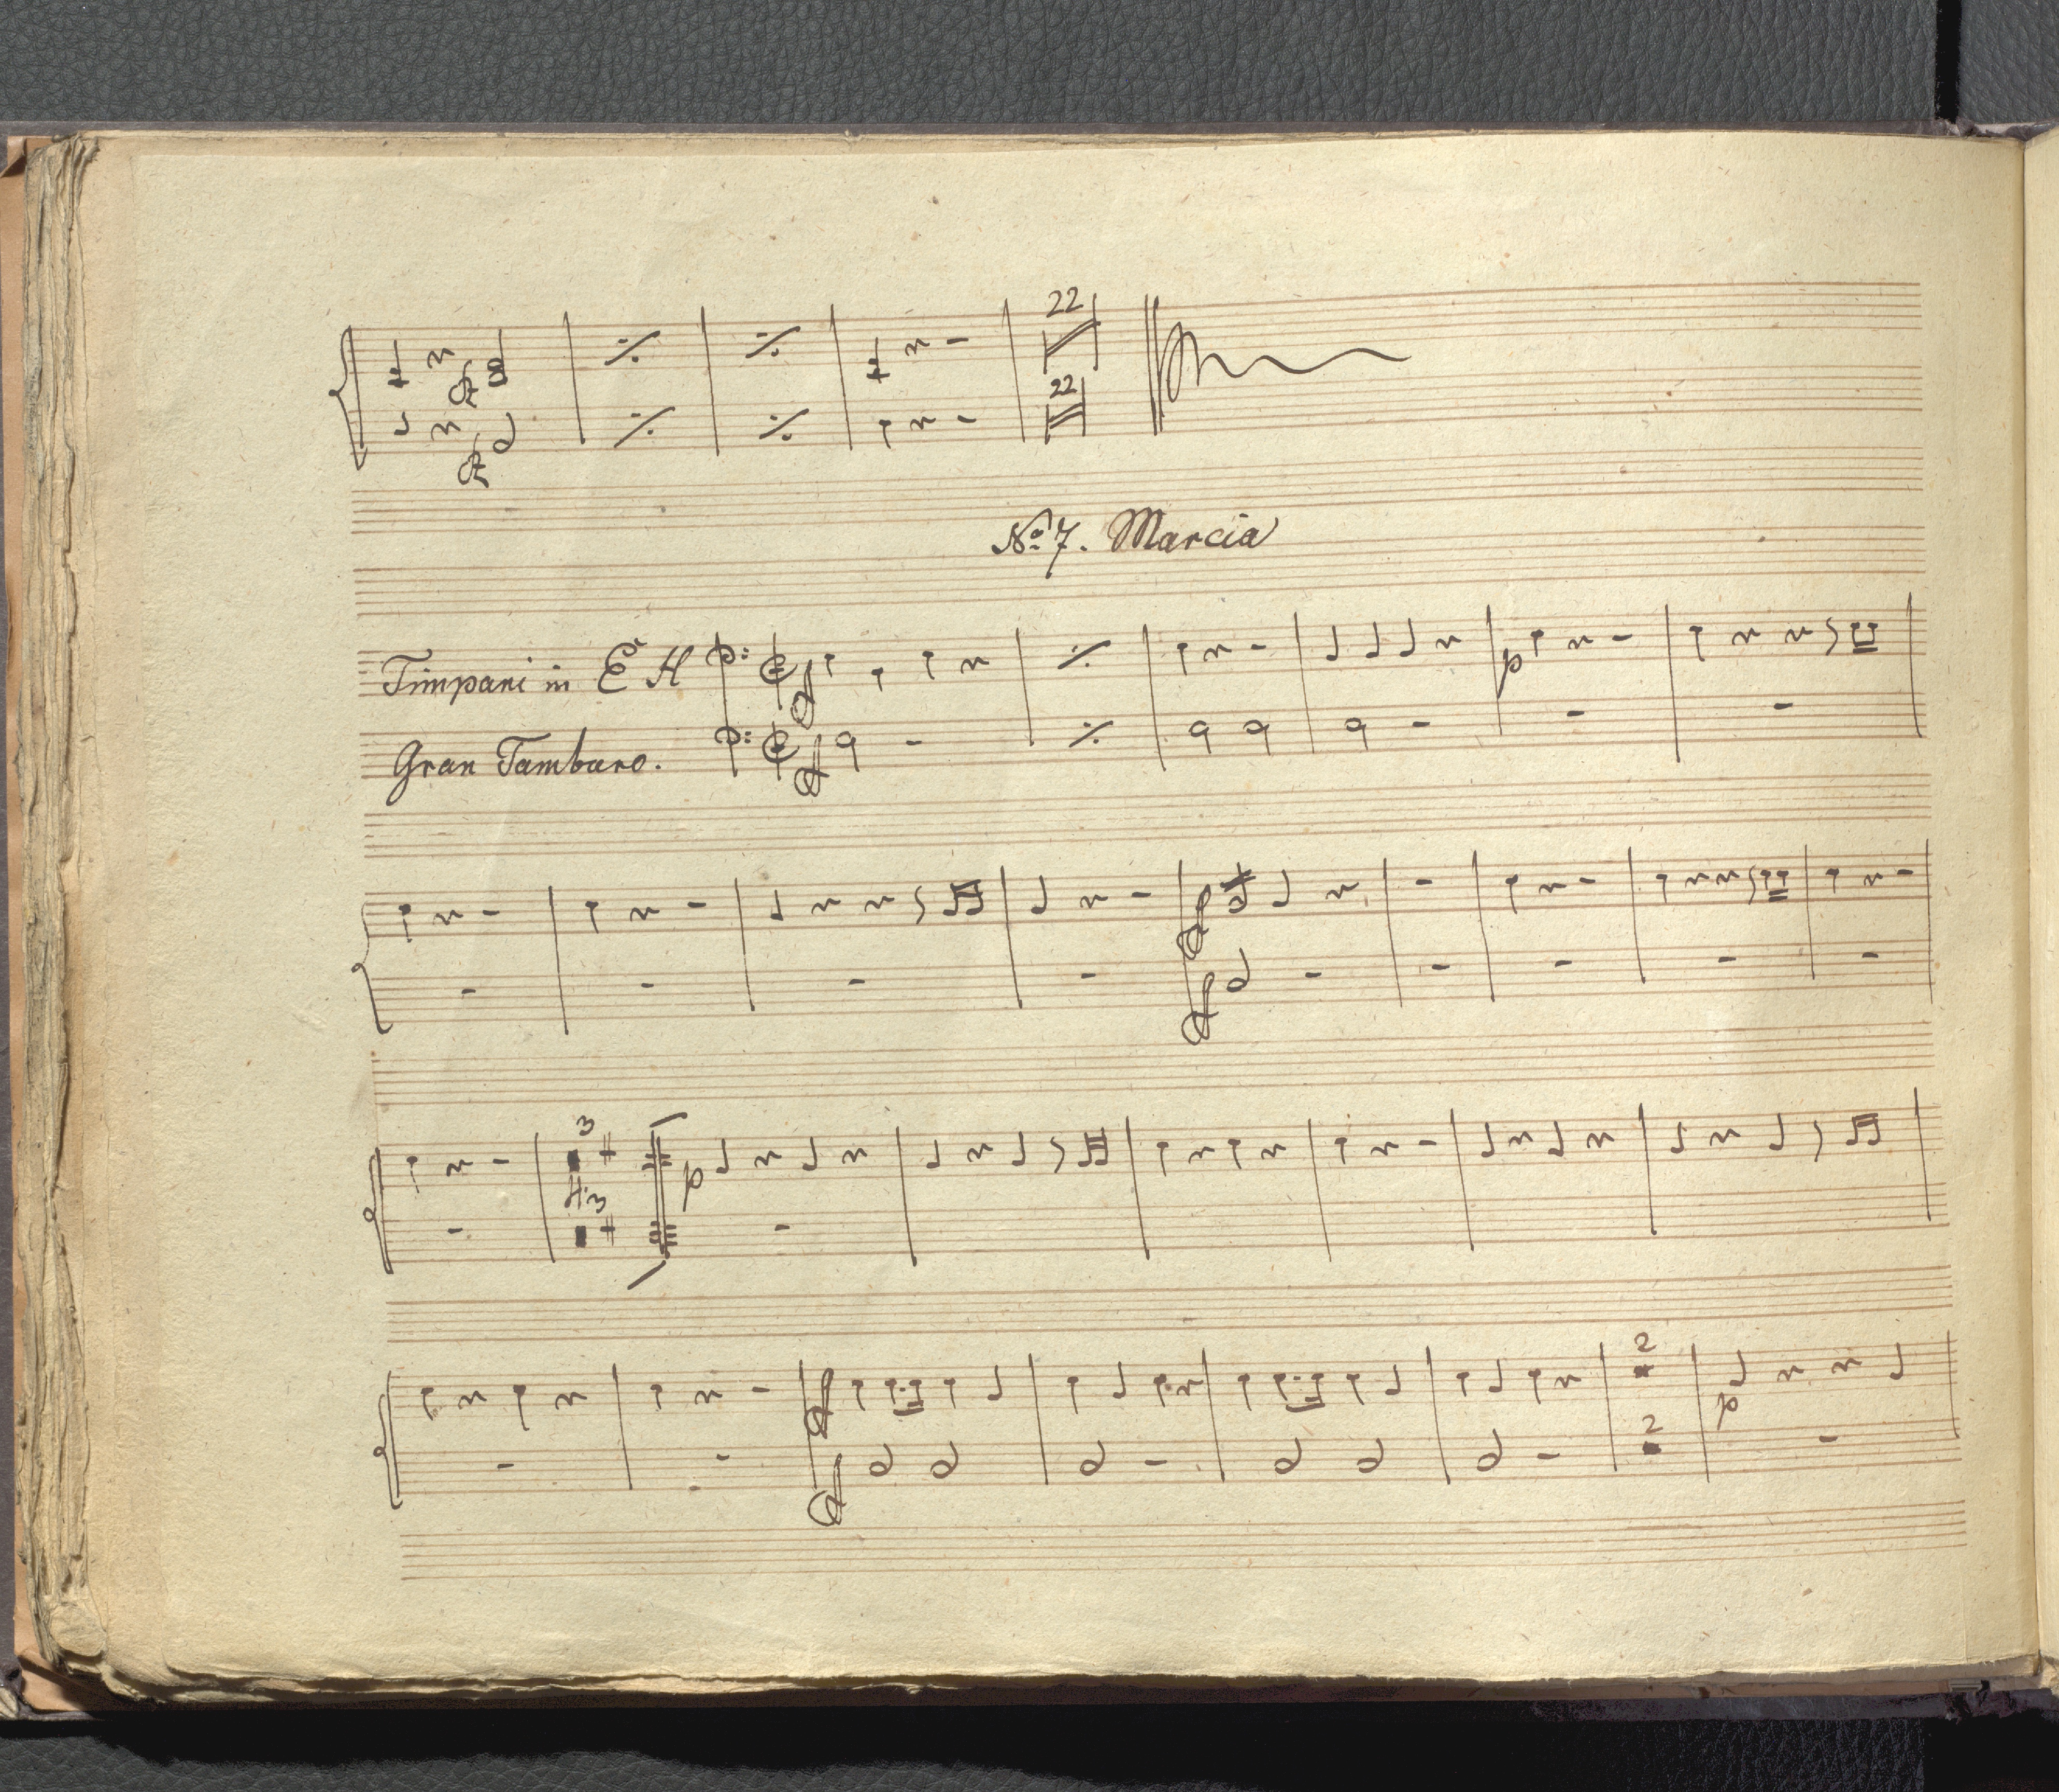 22
22
No 7. Marcia
Timpani in E H
p
Gran Tamburo.
3
p
3
2
2
p